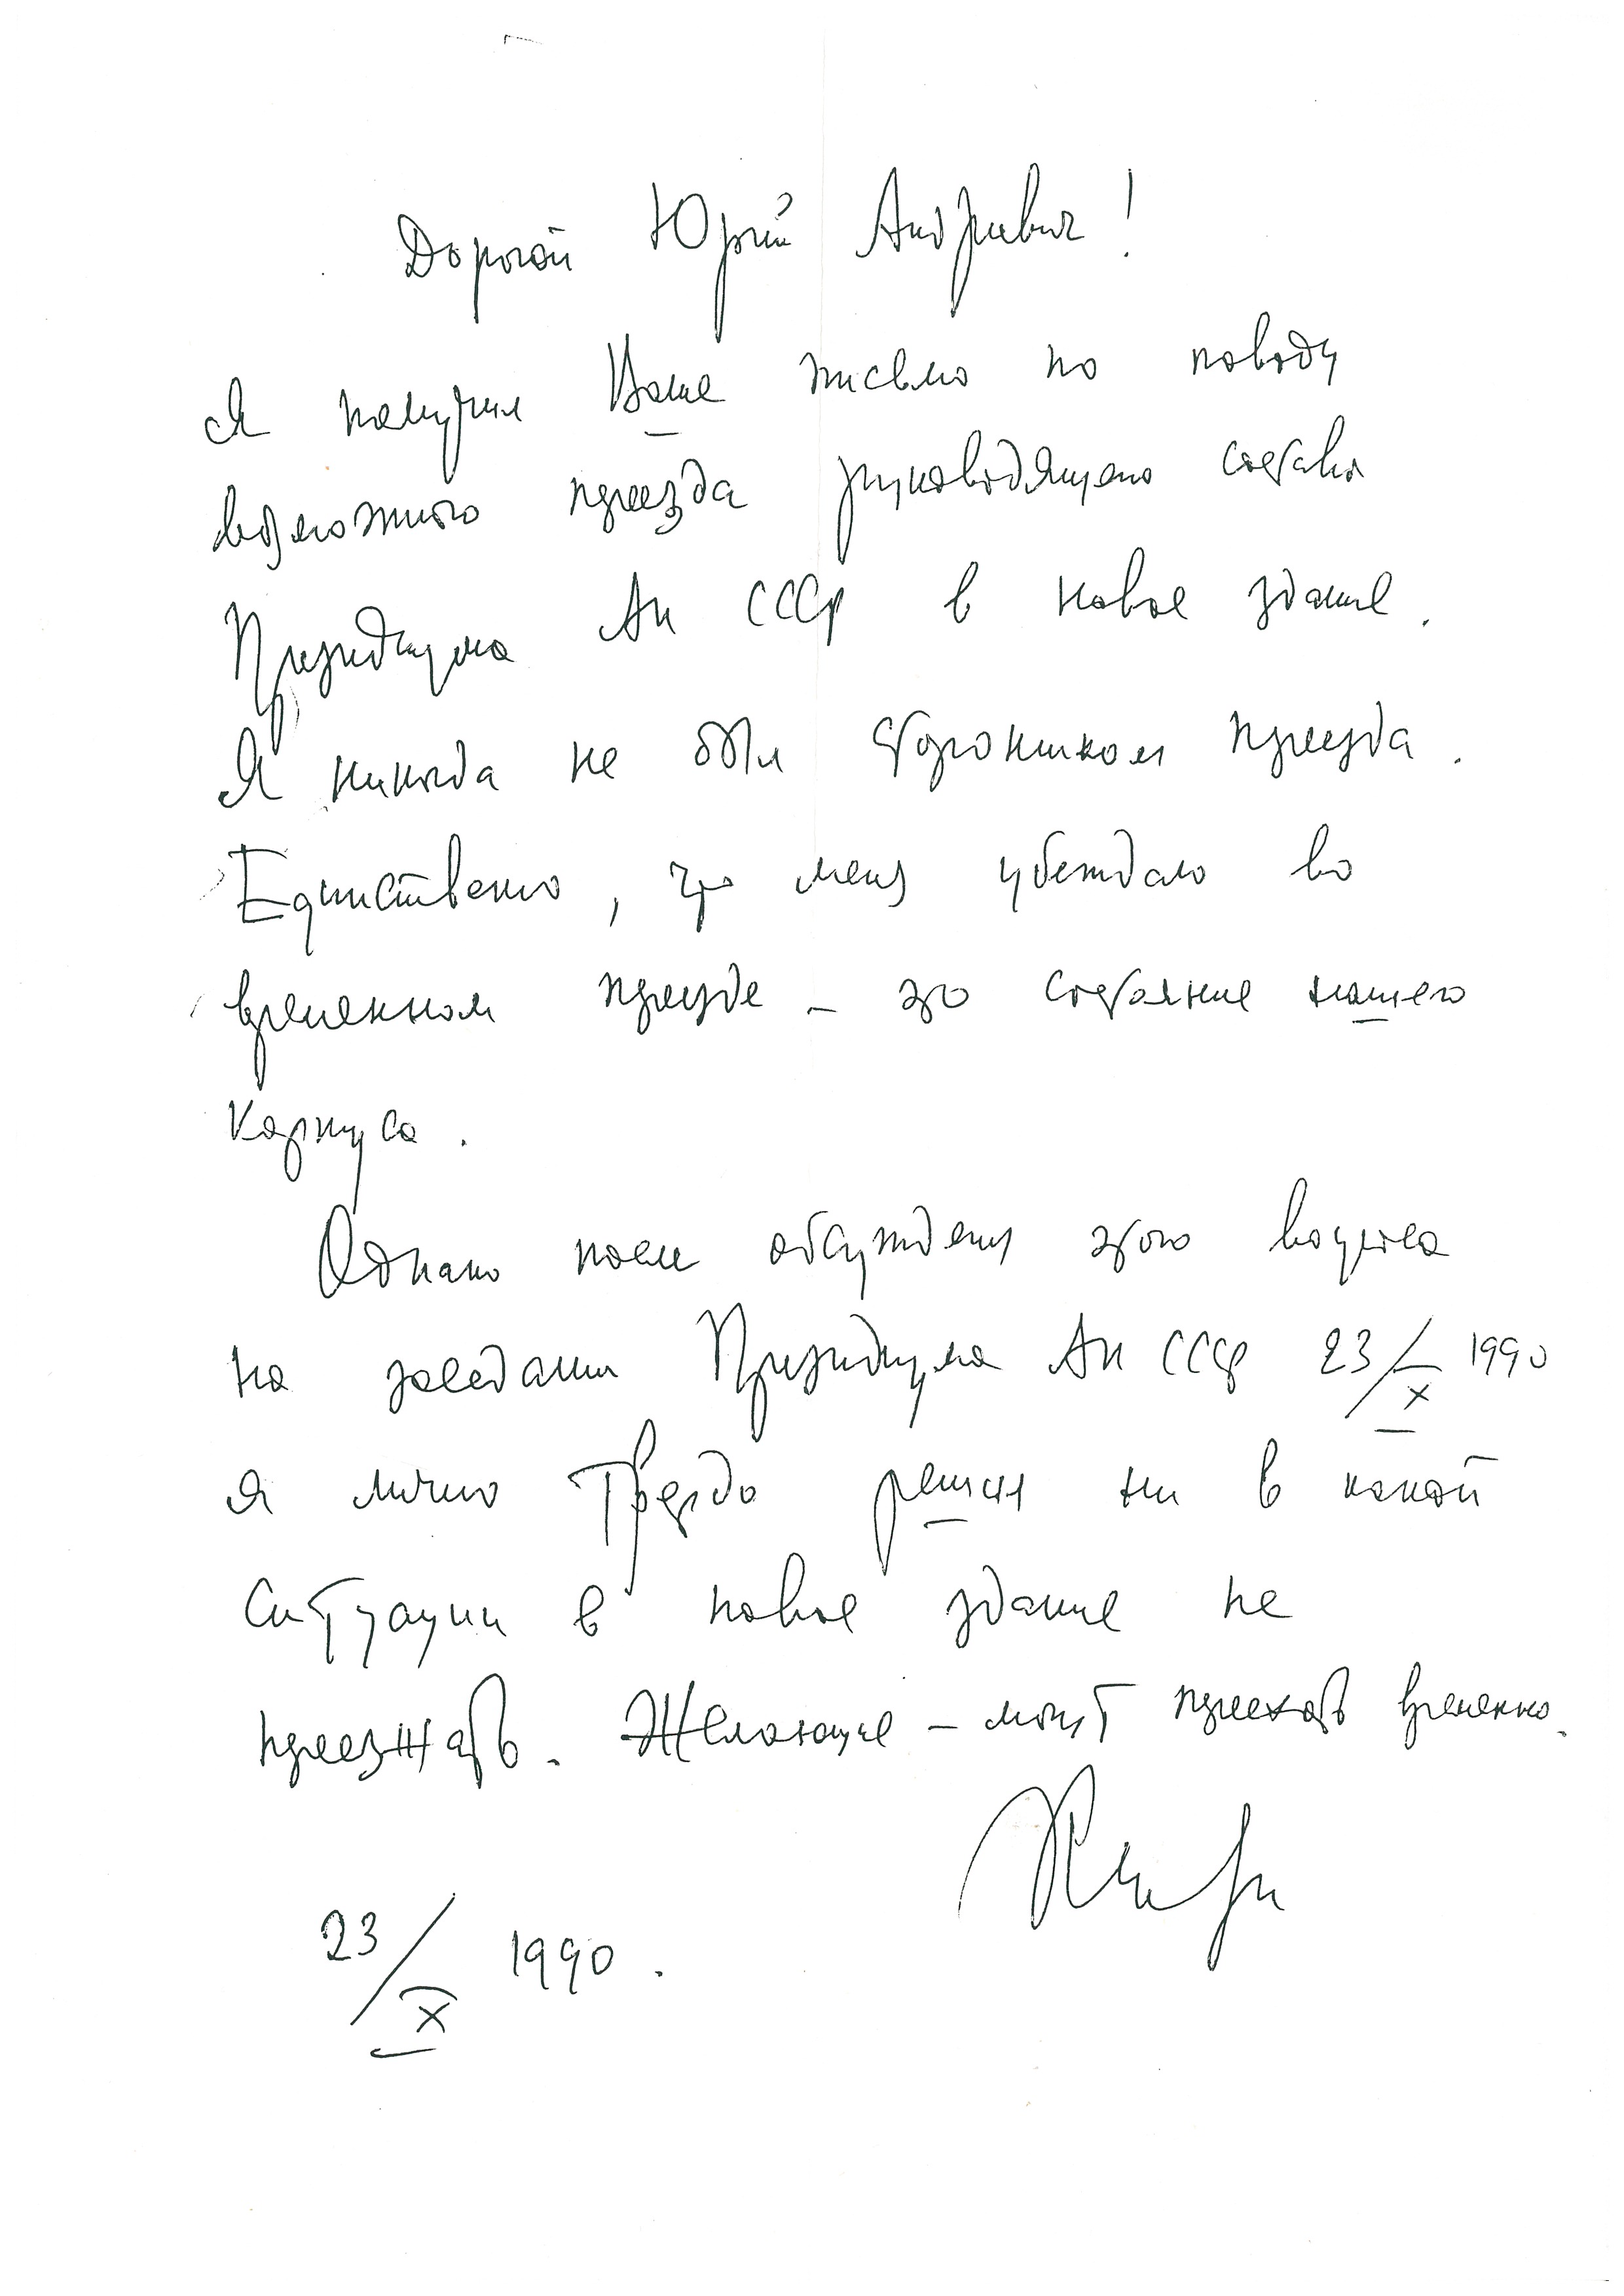 Дорогой Юрий Андреевич!
Я получил Ваше письмо по поводу
возможного переезда руководящего состава
Президиума АН СССР в новое здание.
Я никогда не был сторонником переезда.
Единственно, что меня убеждало во
временном переезде – это состояние нашего
корпуса.
Однако после обсуждения этого вопроса
на заседании Президиума АН СССР 23/X 1990
я лично твердо решил ни в какой
ситуации в новое здание не
переезжать. Желающие – могут переехать временно.
23/X 1990.